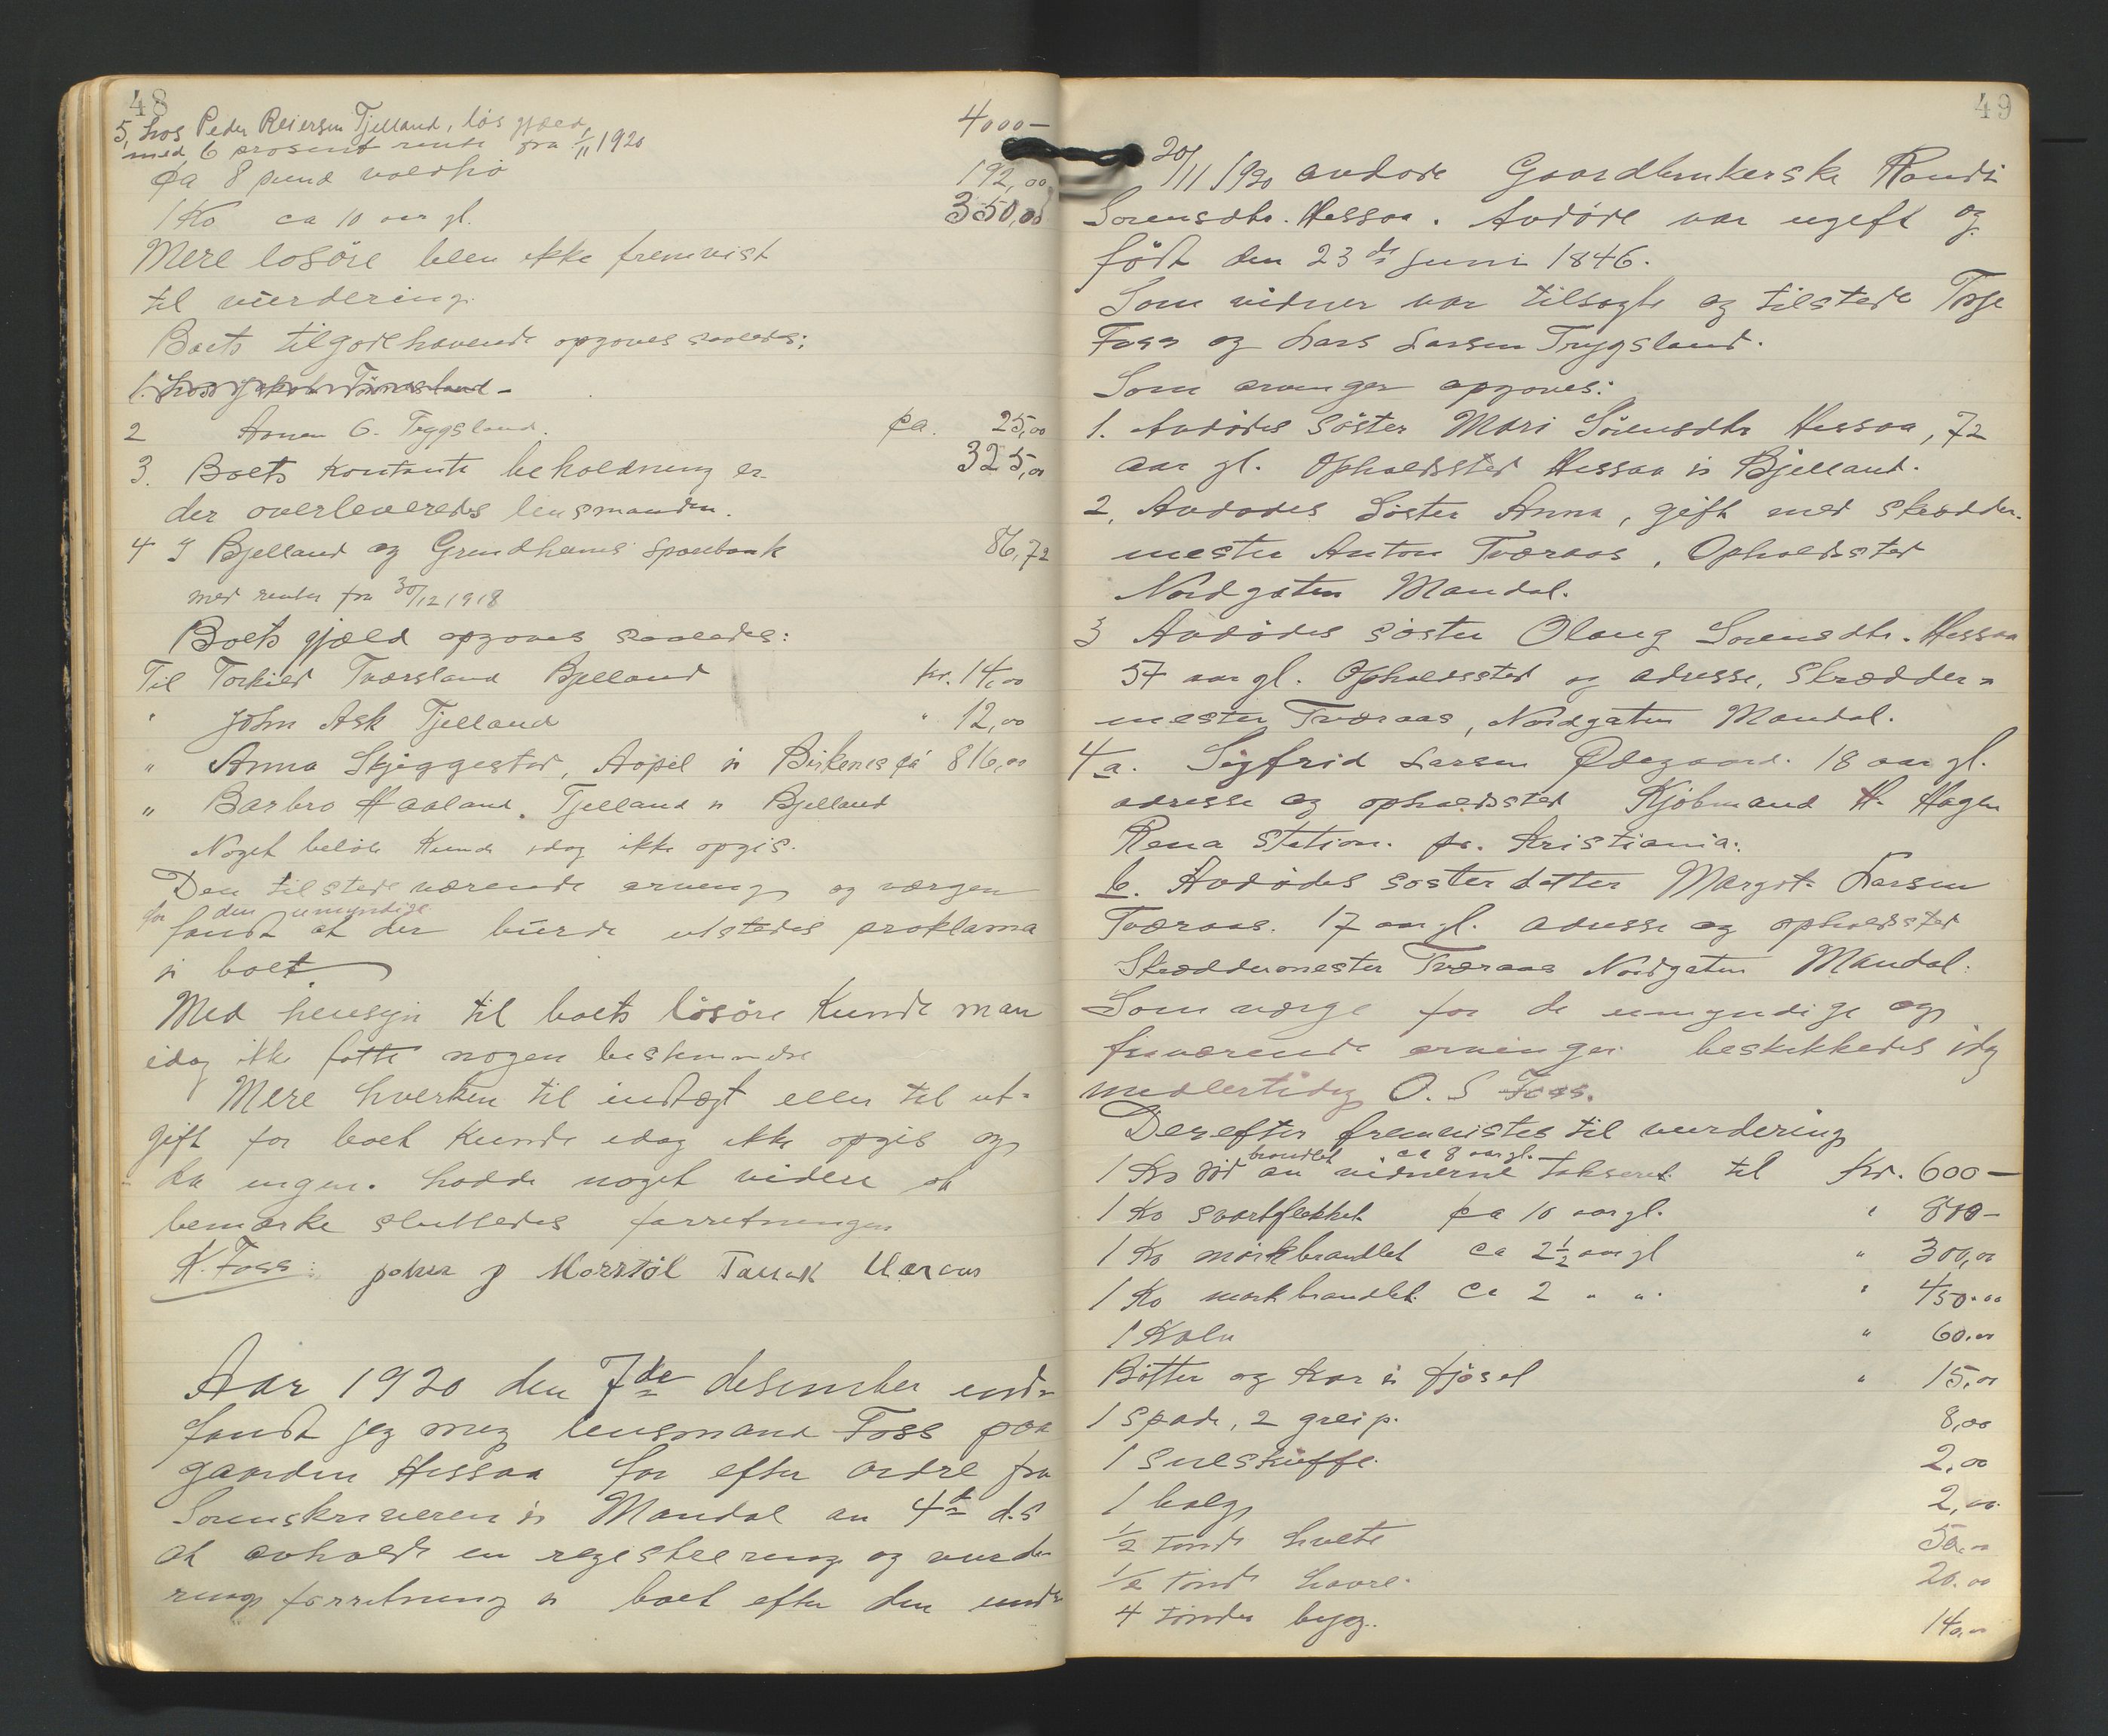 48
5, hos Peder Reiersen Tjelland, løs gjæld, 4000-
med 6 prosent rente fra 1/11 1920
ca 8 pund voldhø 192,00
1 Ko ca 10 aar gl. 350,00
Mere losöre blev ikke fremvist
til vurdering.
Boets tilgodehavende opgaves saaledes:
1. hos
2 Trygsland. ca. 25,00
3. Boets kontante beholdning er 325,00
der overleveredes lensmanden.
4 I Bjelland og Grindheims Sparebank 86,72
med renter fra 30/12 1918
Boets gjæld opgaves saaledes:
Til Torkild Tværsland Bjelland kr. 14,00
" John Ask Tjelland " 12,00
" Anna Skjeggestad, i Birkenes ca 816,00
" Barbro Haaland, Tjelland i Bjelland
Noget beløb kunde idag ikke opgis.
Den tilstedeværende arving og værgen
for den umyndige
fandt at der burde utstedes proklama
i boet
Med hensyn til boets lösöre kunde man
idag ikke fatte nogen bestemmelse
Mere hverken til indtægt eller til ut-
gift for boet kunde idag ikke opgis og
da ingen hadde noget videre at
bemærke sluttedes forretningen
K. Foss:
Aar 1920 den 7de desember ind-
fandt jeg mig lensmand Foss paa
gaarden Hessaa for efter ordre fra
Sorenskriveren i Mandal av 4de d.s
at avholde en registrering og vurde-
rings forretning i boet efter den under
49
20/11 1920 avdøde Gaardbrukerske Randi
Sorensdtr. Hessaa. Avdöde var ugift og
født den 23de Juni 1846.
Som vidner var tilsagte og tilstede Torje
Foss og Lars Larsen Trygsland.
Som arvinger opgaves:
1. Avdødes söster Mari Sörensdtr Hessaa, 72
aar gl. Opholdssted Hessaa i Bjelland.
2. Avdødes Söster Anna, gift med skrædder-
mester Anton Tværaas, Opholdssted
Nordgaten Mandal.
3 Avdödes söster Olaug Sorensdtr. Hessaa
57 aar gl. Opholdssted og adresse, Skrædder=
mester Tværaas, Nordgaten Mandal.
4 a. Sigfrid Larsen Ödegaard. 18 aar gl.
adresse og opholdssted Kjöbmand H. Hagen
Rena Station. pr. Kristiania.
b. Avdödes söster datter Margit Larsen
Tværaas. 17 aar gl. adresse og opholdssted
Skræddermester Tværaas Nordgaten Mandal.
Som værge for de umyndige og
fraværende arvinger beskikkedes idag
midlertidig O. S Foss.
Derefter fremvistes til vurdering
brandlet ca 8 aar gl.
1 Ko av vidnerne takseret til kr. 600-
1 Ko svartflekket ca 10 aar gl. "
1 Ko mörkbrandlet ca 2½ aar gl " 300,00
1 Ko mörkbrandlet ca 2 " " " 450.00
1 Kalv " 60.00
Bötter og Kar i fjöset " 15,00
1 Spade, 2 greip. 8,00
1 Sneskuffe. 2,00
1 balg 2,00
½ tönde hvete 50,00
½ tönde havre. 20.00
4 tönder bygg. 140,00